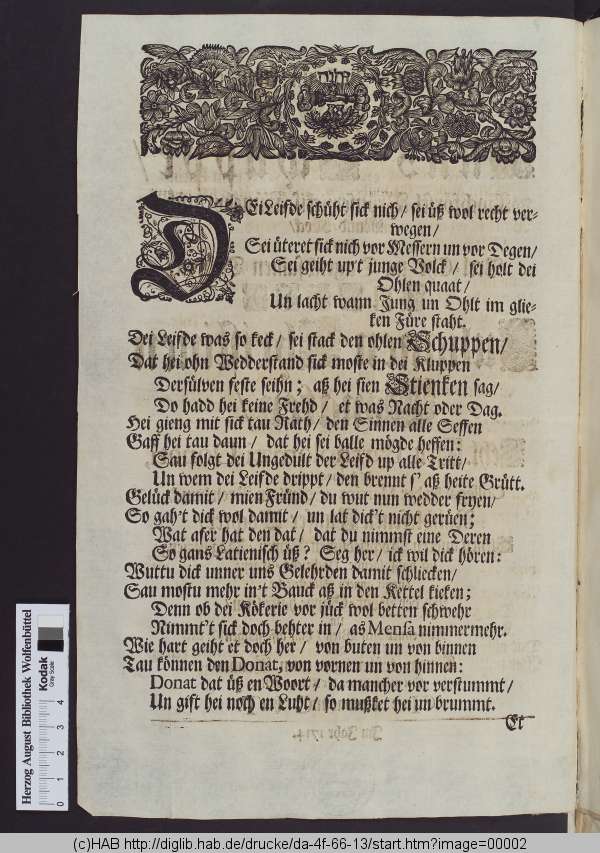 יהוה
DEi Leifde schüht sick nich/ sei üß wol recht ver-
wegen/
Sei üteret sick nich vor Messern un vor Degen/
Sei geiht up't junge Volck/ sei holt dei
Ohlen quaat/
Un lacht wann Jung un Ohlt im glie-
ken Füre staht.
Dei Leifde was so keck/ sei stack den ohlen Schuppen/
Dat hei ohn Wedderstand sick moste in dei Kluppen
Dersülven feste seihn; aß hei sien Stienken sag/
Do hadd hei keine Frehd/ et was Nacht oder Dag.
Hei gieng mit sick tau Rath/ den Sinnen alle Seffen
Gaff hei tau daun/ dat hei sei balle mögde heffen:
Sau folgt dei Ungedult der Leifd up alle Tritt/
Un wem dei Leifde drippt/ den brennt s' aß heite Grütt.
Gelück damit/ mien Fründ/ du wut nun wedder fryen/
So gah't dick wol damit/ un lat dick't nicht gerüen;
Wat afer hat den dat/ dat du nimmst eine Deren
So gans Latienisch üß? Seg her/ ick wil dick hören:
Wuttu dick unner uns Gelehrden damit schliecken/
Sau mostu mehr in't Bauck aß in den Kettel kieken;
Denn ob dei Kökerie vor jück wol betten schwehr
Nimmt't sick doch behter in/ as Mensa nimmermehr.
Wie hart geiht et doch her/ von buten un von binnen
Tau können den Donat, von vornen un von hinnen:
Donat dat üß en Woort/ da mancher vor verstummt/
Un gift hei noch en Luht/ so mußket hei un brummt.
Et
Im Jahr 1714.
Herzog August Bibliothek Wolfenbüttel
Kodak
Gray Scale
0 1 2 3 4
(c)HAB http://diglib.hab.de/drucke/da-4f-66-13/start.htm?image=00002